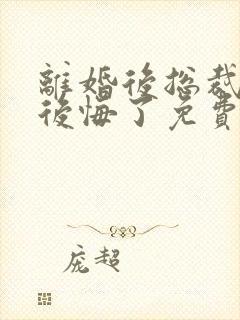 離婚後總裁
後悔了免費
庞超